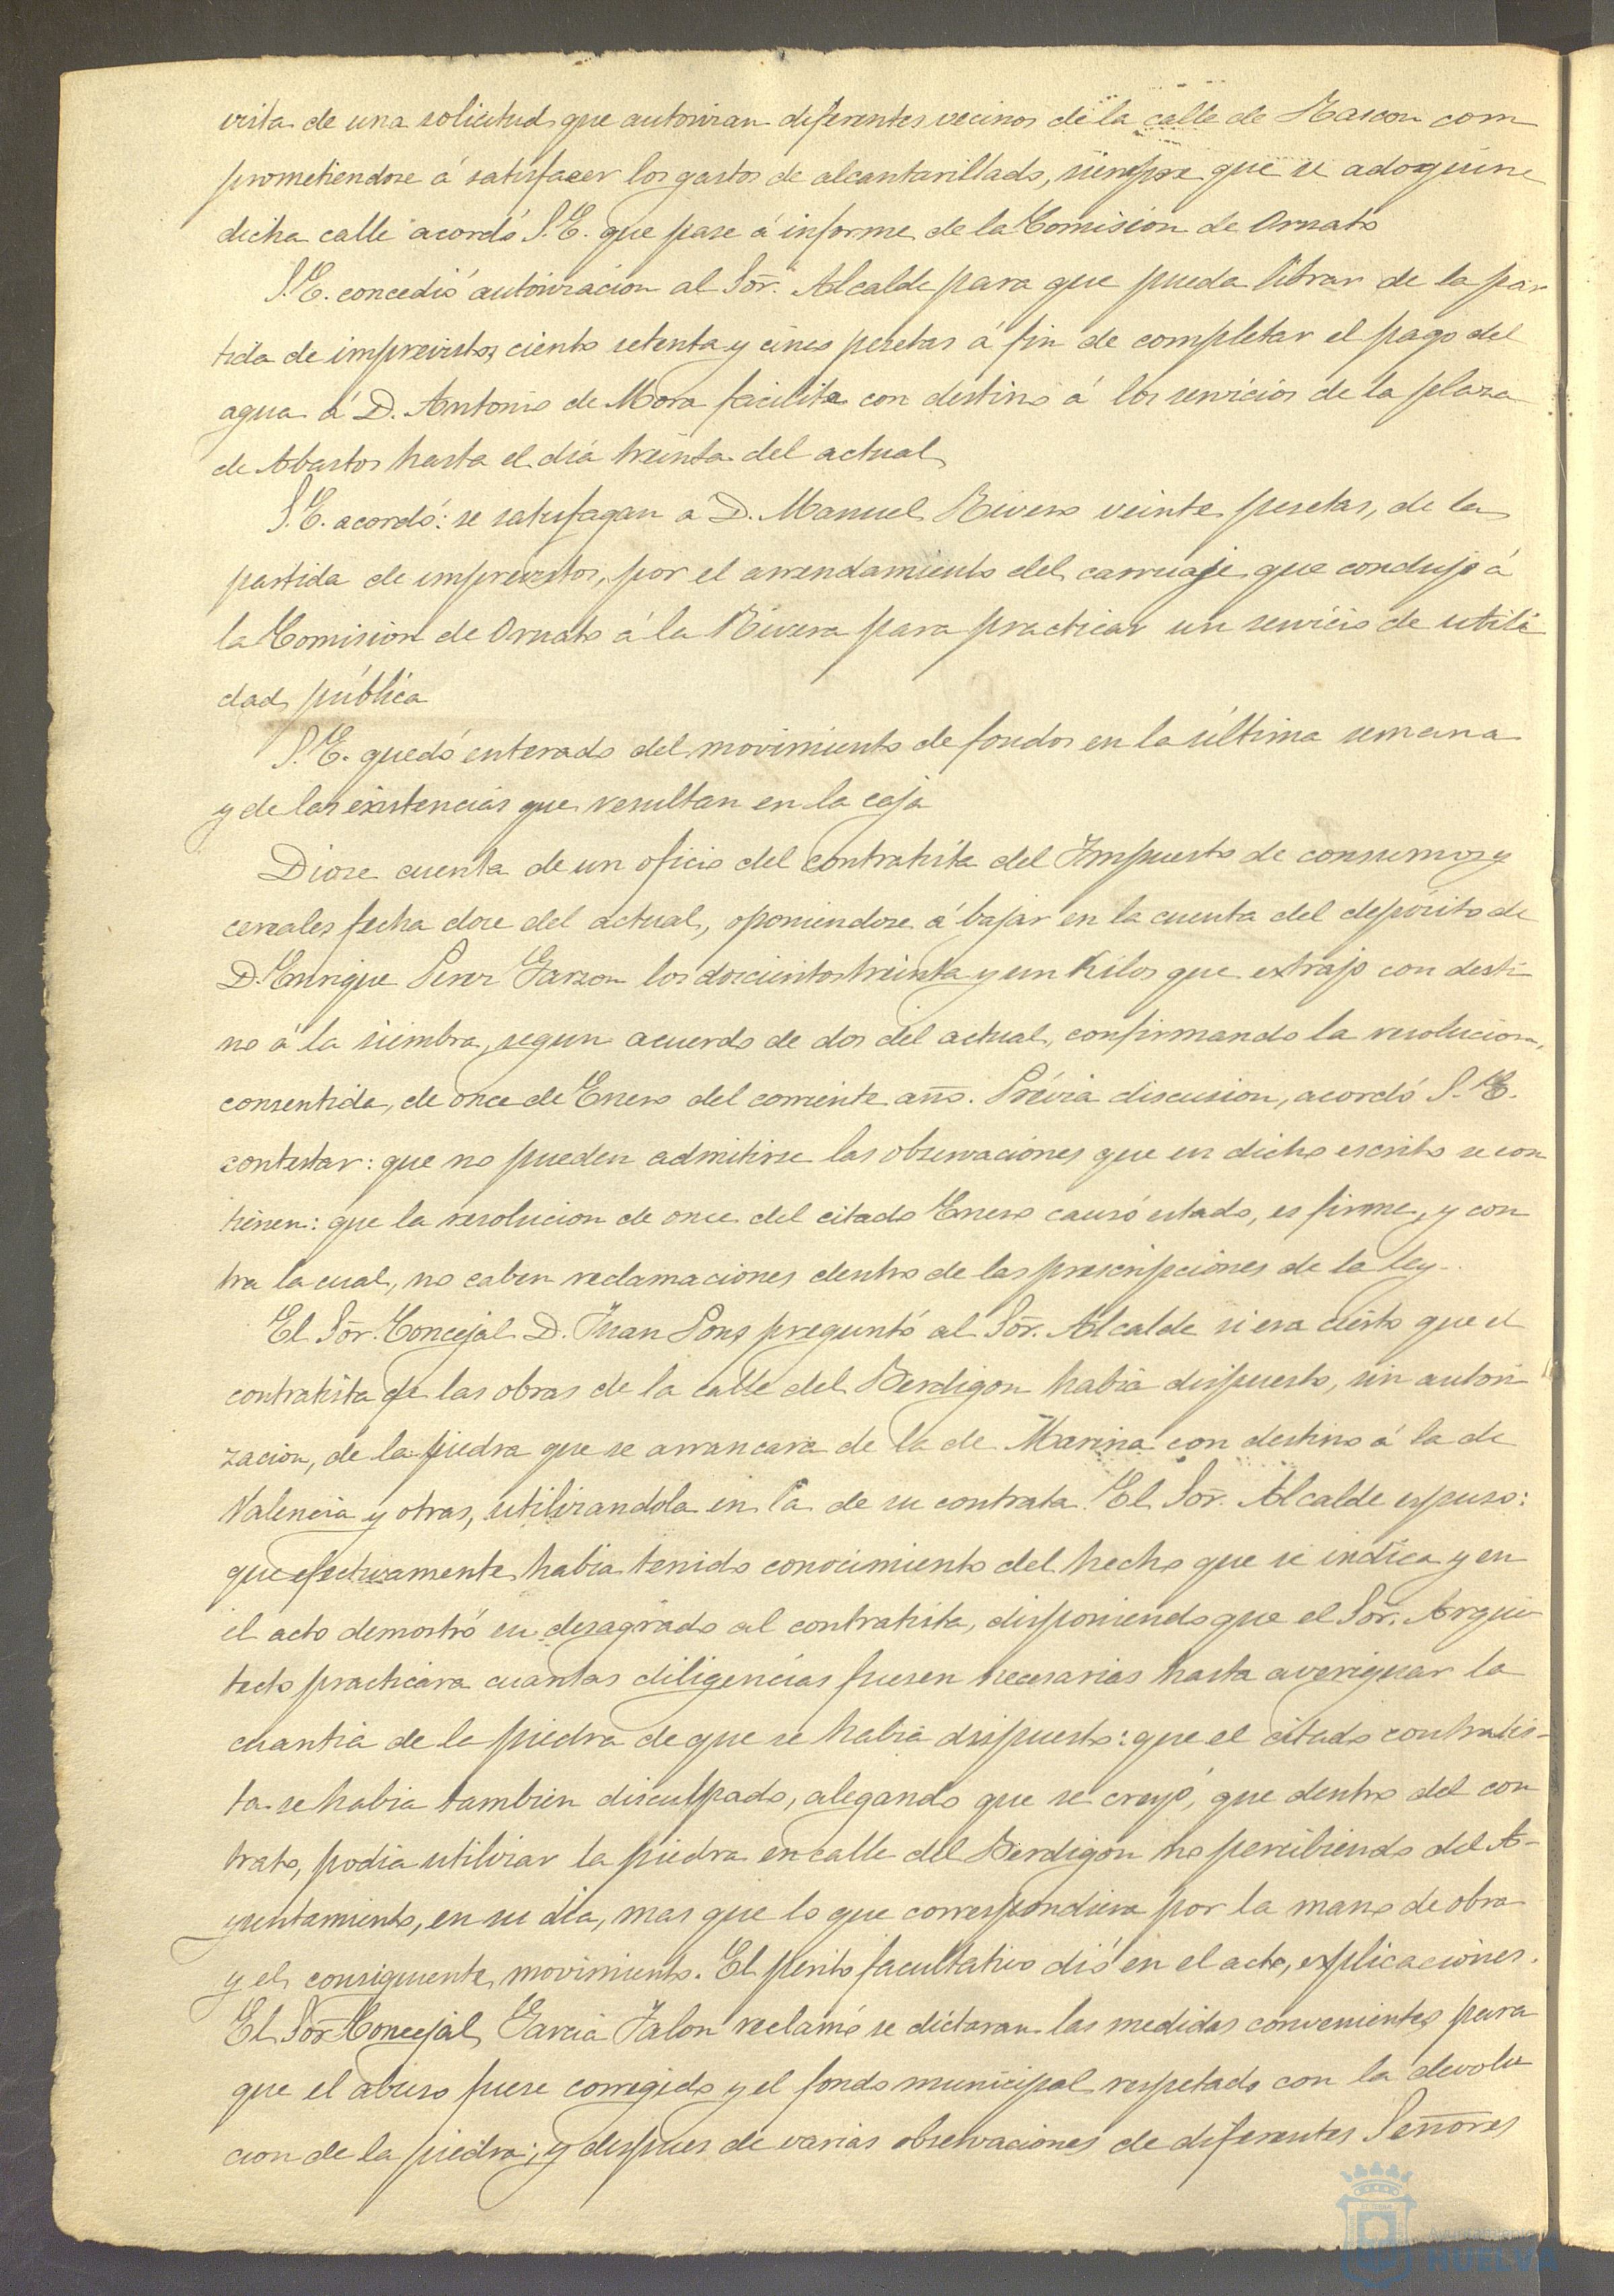 vista de una solicitud que autorizan diferentes vecinos de la calle de Rascon com
prometiendose á satisfacer los gastos de alcantarillado, siempre que se adoquine
dicha calle acordó S.E. que pase á informe de la Comision de Ornato
S.E. concedió autorizacion al Sor. Alcalde para que pueda librar de la par
tida de imprevistos ciento setenta y cinco pesetas á fin de completar el pago del
agua á D. Antonio de Mora facilita con destino á los servicios de la plaza
de Abastos hasta el dia treinta del actual
S.E. acordó: se satisfagan a D. Manuel Rivero veinte pesetas, de la
partida de imprevistos, por el arrendamiento del carruaje que condujo á
la Comision de Ornato á la Rivera para practicar un servicio de utili
dad pública
S.E. quedó enterado del movimiento de fondos en la última semana
y de las existencias que resultan en la caja
Diose cuenta de un oficio del contratista del Impuesto de consumos y
cereales fecha doce del actual, oponiendose á bajar en la cuenta del depósito de
D. Enrique Perez Garzon los doscientos treinta y un Kilos que extrajo con desti
no á la siembra, segun acuerdo de dos del actual, confirmando la resolucion,
consentida, de once de Enero del corriente año. Prévia discusion, acordó S.E.
contestar: que no pueden admitirse las observaciones que en dicho escrito se con
tienen: que la resolucion de once del citado Enero causó estado, es firme, y con
tra la cual, no caben reclamaciones dentro de las prescripciones de la ley.
El Sor. Concejal D. Juan Pons preguntó al Sor. Alcalde si era cierto que el
contratista de las obras de la calle del Berdigon habia dispuesto, sin autori
zacion, de la piedra que se arrancara de la de Marina con destino á la de
Valencia y otras, utilizandola en la de su contrata. El Sor. Alcalde espuso:
que efectivamente habia tenido conocimiento del hecho que se indica y en
el acto demostró su desagrado al contratista, disponiendo que el Sor. Arqui
tecto practicara cuantas diligencias fuesen necesarias hasta averiguar la
cuantia de la piedra de que se habia dispuesto: que el citado contratis-
ta se habia tambien disculpado, alegando que se creyó, que dentro del con
trato, podia utilizar la piedra en calle del Berdigon no percibiendo del A-
yuntamiento, en su dia, mas que lo que correspondiera por la mano de obra
y el consiguiente movimiento. El perito facultativo dió en el acto, explicaciones.
El Sor. Concejal Garcia Jalon reclamó se dictaran las medidas convenientes para
que el abuso fuese corregido y el fondo municipal respetado con la devolu
cion de la piedra; y despues de varias observaciones de diferentes Señores
HUELVA